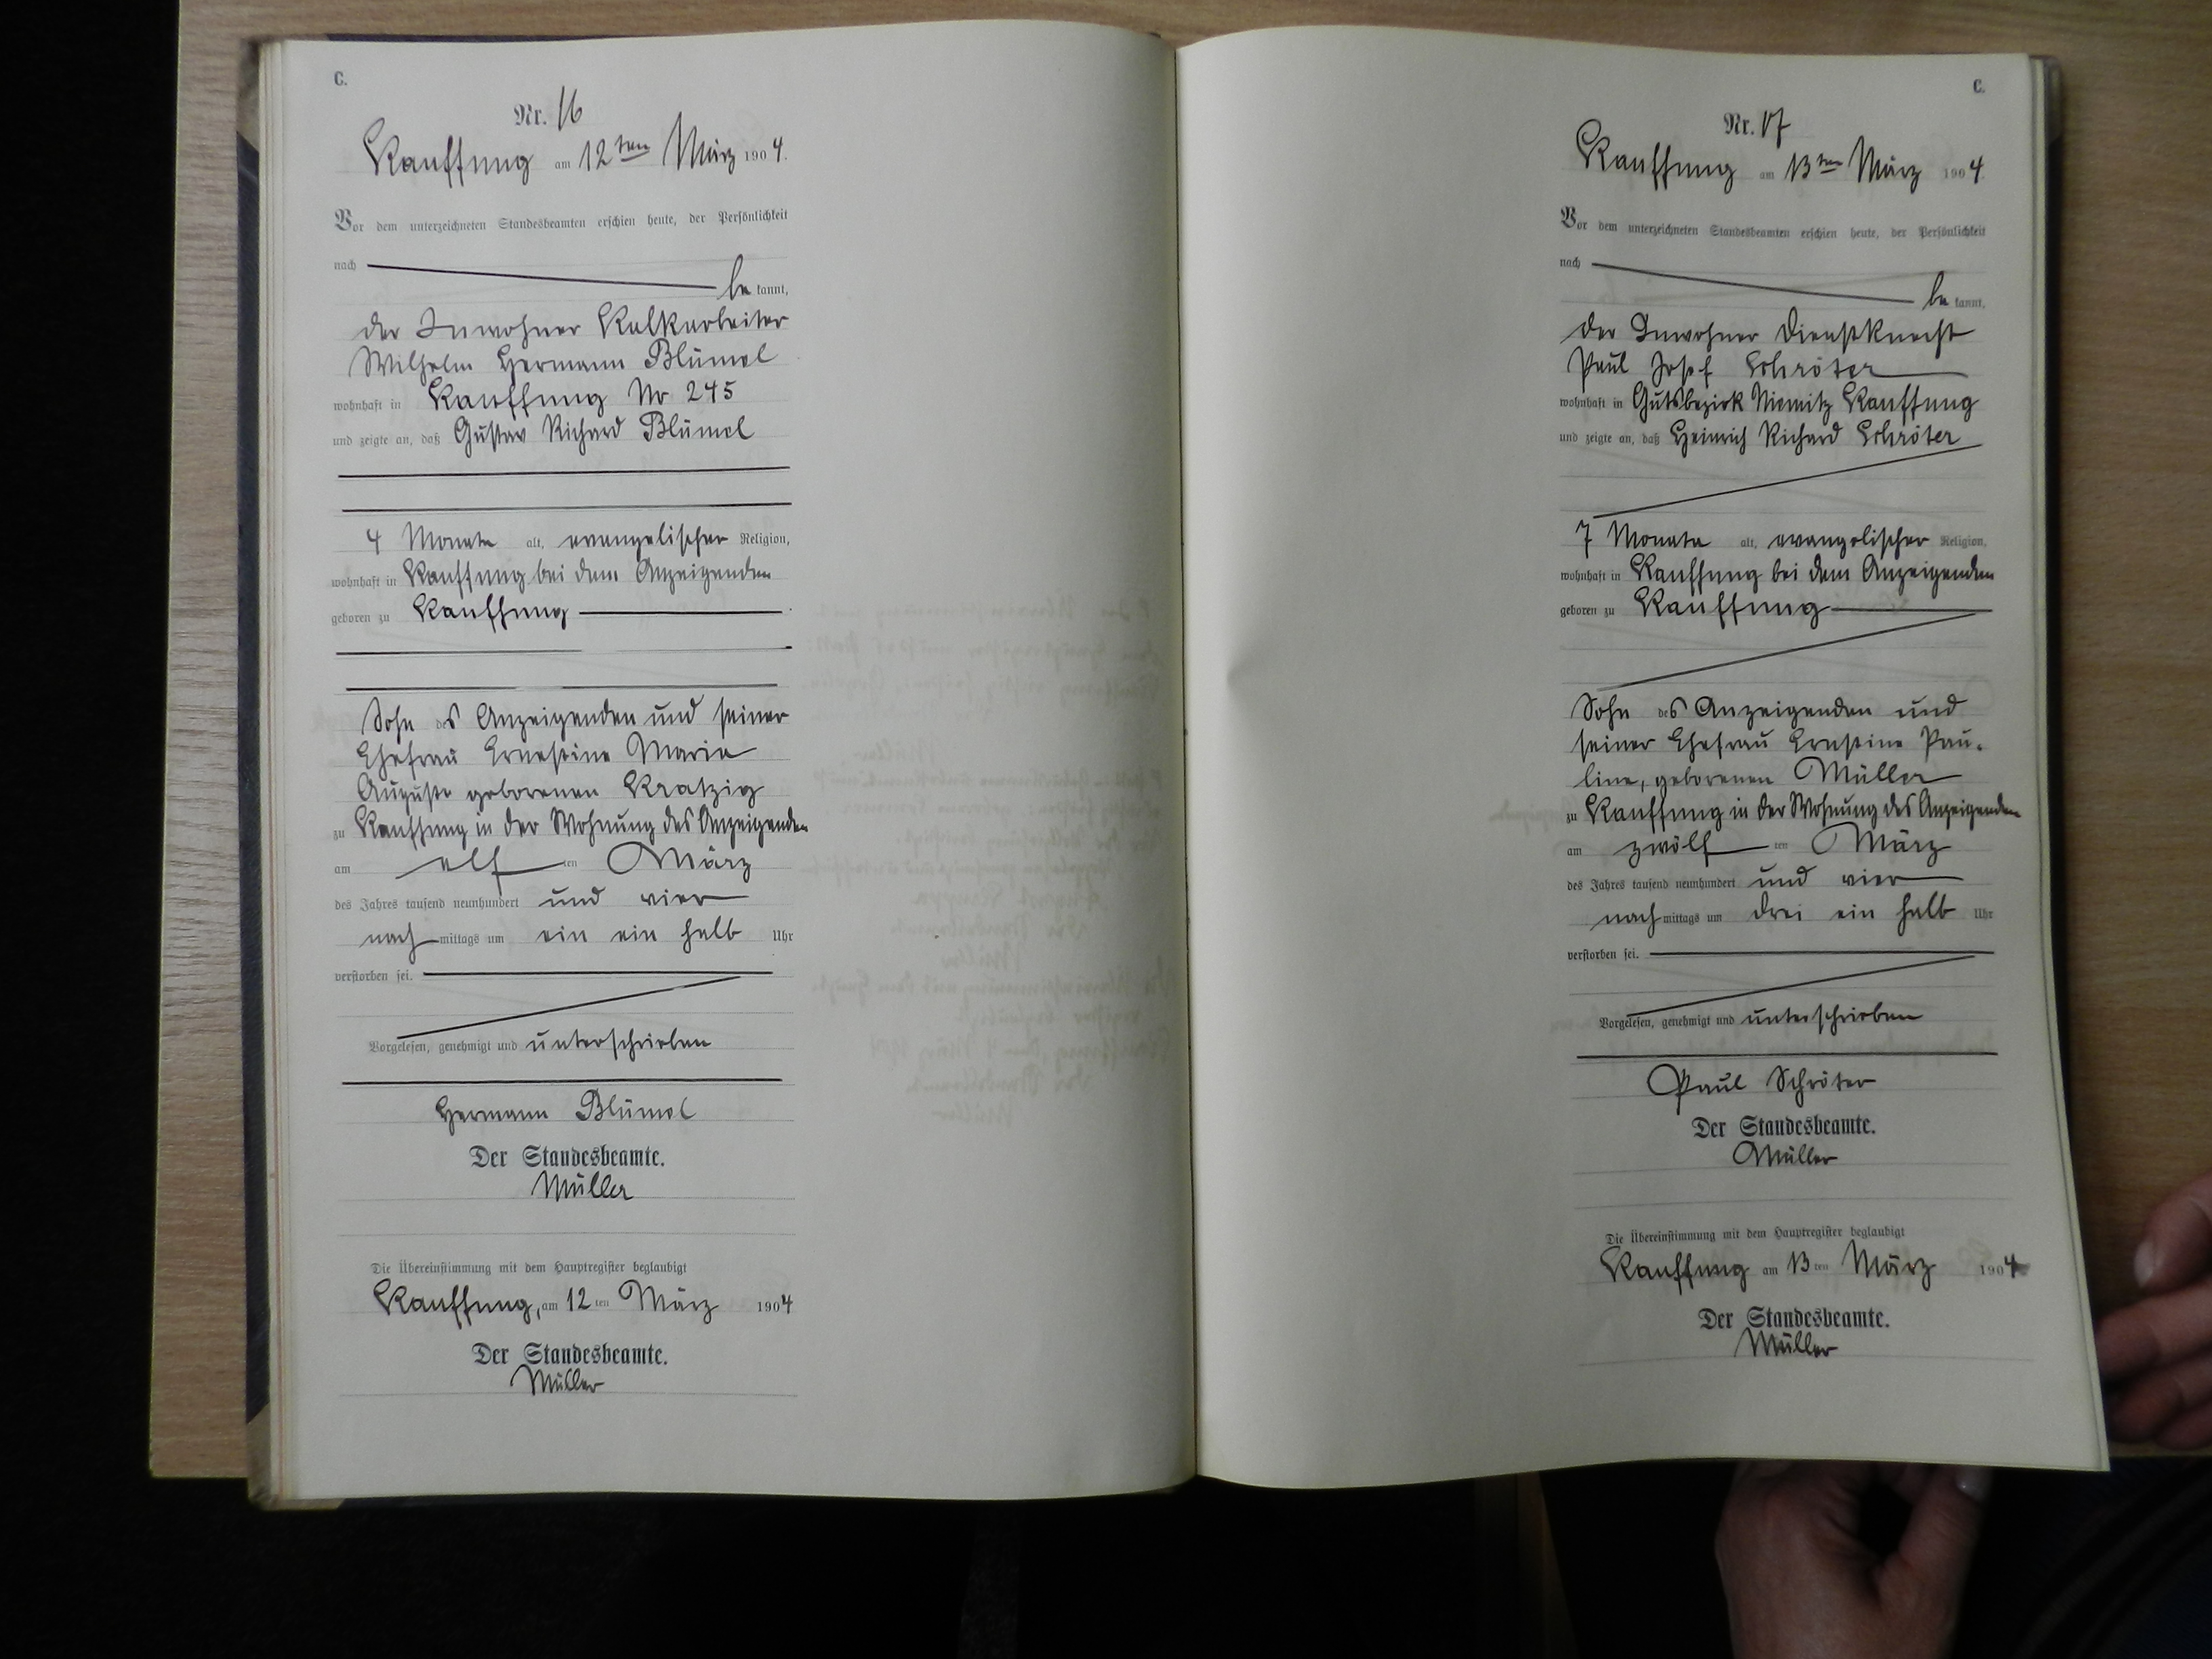 C.
Nr. 16
Kauffung am 12ten März 1904.
Vor dem unterzeichneten Standesbeamten erschien heute, der Persönlichkeit
nach
be kannt,
der Inwohner Kalkarbeiter
Wilhelm Hermann Blümel
wohnhaft in Kauffung Nr 245
und zeigte an, daß Gustav Richard Blümel
4 Monate alt, evangelischer Religion,
wohnhaft in Kauffung bei dem Anzeigenden
geboren zu Kauffung
Sohn des Anzeigenden und seiner
Ehefrau Ernestine Maria
Auguste geborenen Kratzig
zu Kauffung in der Wohnung des Anzeigenden
am elf ten März
des Jahres tausend neunhundert und vier
nachmittags um ein ein halb Uhr
verstorben sei.
Vorgelesen, genehmigt und unterschrieben
Hermann Blümel
Der Standesbeamte.
Müller
Die Übereinstimmung mit dem Hauptregister beglaubigt
Kauffung, am 12ten März 1904
Der Standesbeamte.
Müller
C.
Nr. 17
Kauffung am 13ten März 1904
Vor dem unterzeichneten Standesbeamten erschien heute, der Persönlichkeit
nach
be kannt,
der Inwohner Dienstknecht
Paul Josef Schröter
wohnhaft in Gutsbezirk Niemitz Kauffung
und zeigte an, daß Heinrich Richard Schröter
7 Monate alt, evangelischer Religion,
wohnhaft in Kauffung bei dem Anzeigenden
geboren zu Kauffung
Sohn des Anzeigenden und
seiner Ehefrau Ernstine Pau-
line, geborenen Müller
zu Kauffung in der Wohnung des Anzeigenden
am zwölf ten März
des Jahres tausend neunhundert und vier
nachmittags um drei ein halb Uhr
verstorben sei.
Vorgelesen, genehmigt und unterschrieben
Paul Schröter
Der Standesbeamte.
Müller
Die Übereinstimmung mit dem Hauptregister beglaubigt
Kauffung am 13ten März 1904
Der Standesbeamte.
Müller